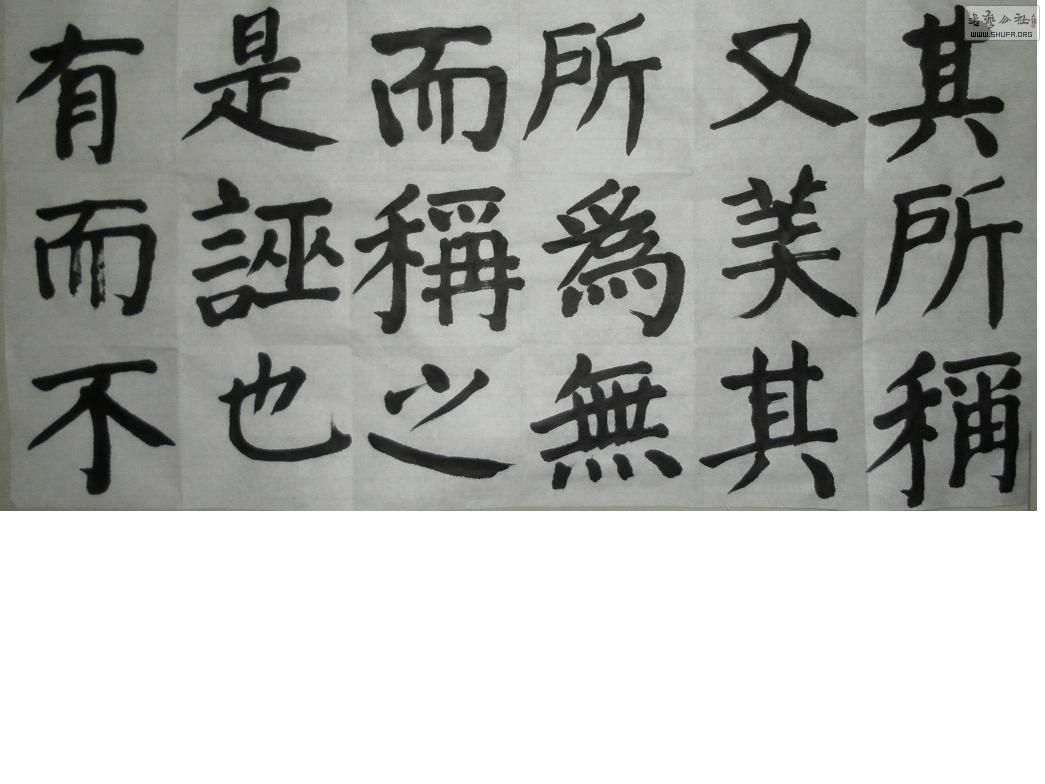 其所稱
又美其
所爲無
而稱之
是誣也
有而不
书艺公社
WWW.SHUFA.ORG